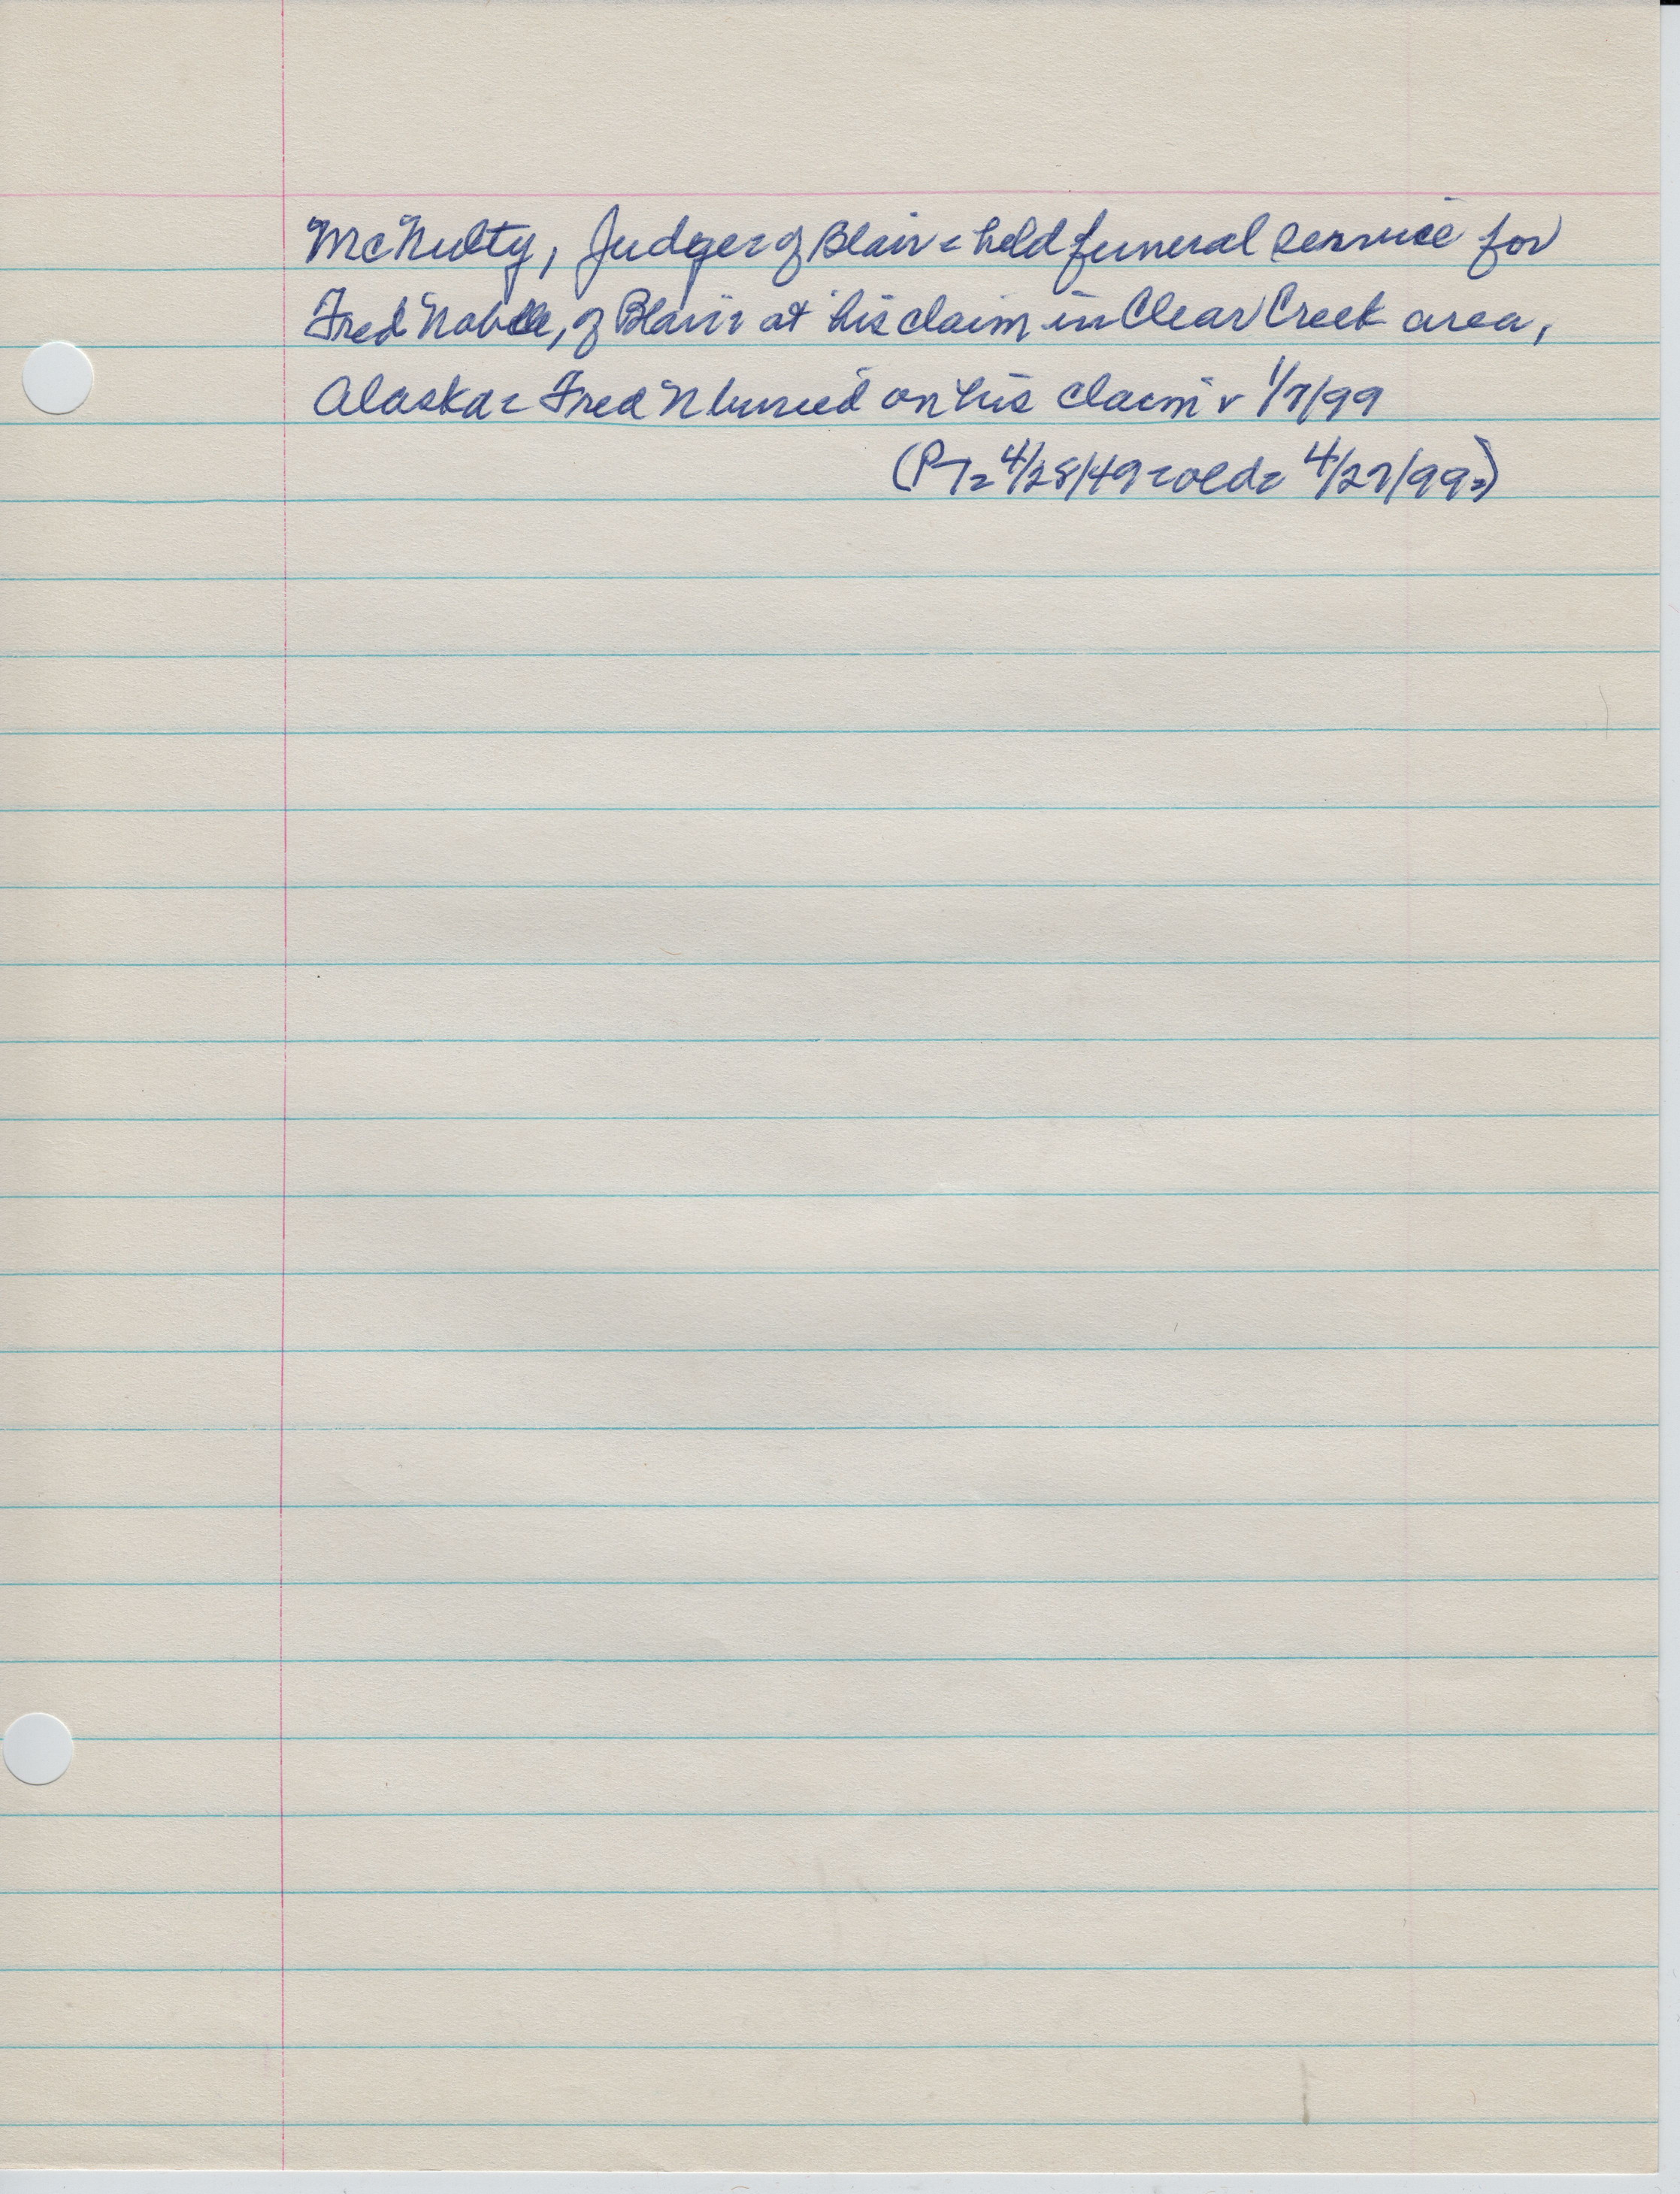 McNulty, Judge = of Blair = held funeral service for
Fred Noble, of Blair = at his claim in Clear Creek area,
Alaska = Fred N buried on his claim = 1/7/99
(PT = 4/28/49 = old = 4/27/99 =)